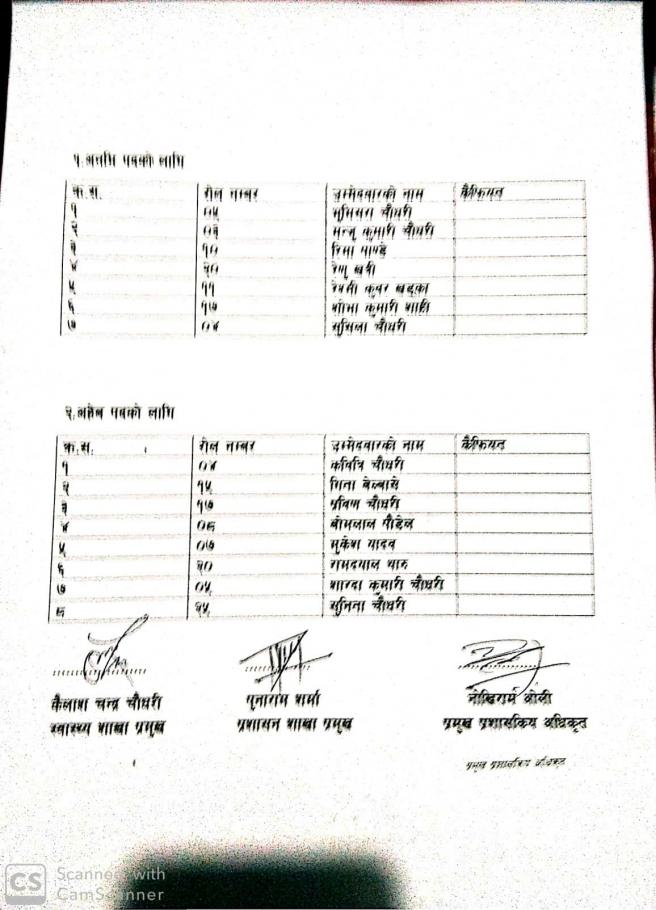 १.अनमि पदको लागि
क.स. रोल नम्बर उम्मेदवारको नाम कैफियत
१ ०५ चौधरी
२ ०६ मन्जु कुमारी चौधरी
३ १० रिमा पाण्डे
४ २० रेणु खत्री
५ ११ कुवर खड्का
६ १७ शोभा कुमारी शाही
७ ०४ सुसिला चौधरी
२.अहेब पदको लागि
क.स. रोल नम्बर उम्मेदवारको नाम कैफियत
१ ०४ चौधरी
२ १५ गिता बेल्बासे
३ १७ प्रविण चौधरी
४ ०८ बोमलाल पौडेल
५ ०७ मुकेश यादव
६ २० रामदयाल थारु
७ ०५ शारदा कुमारी चौधरी
८ सुनिता चौधरी
कैलाश चन्द्र चौधरी पुनाराम शर्मा ओली
स्वास्थ्य शाखा प्रमुख प्रशासन शाखा प्रमुख प्रमुख प्रशासकिय अधिकृत
प्रमुख प्रशासकिय अधिकृत
CS Scanned with
CamScanner